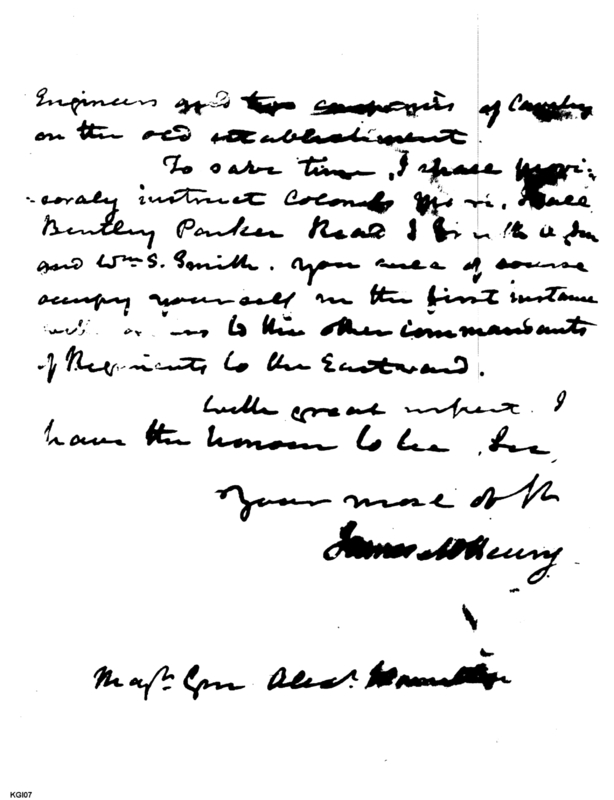 Engineers and two companies of Cavalry
on the old establishment.
To save time, I shall provi-
-soraly instruct Colonels Hall
Bentley Parker Read
and Wm S. Smith. You will of course
occupy yourself in the first instance
to the other commandants
of Regiments to the Eastward.
With great respect I
have the honour to be, Sir,
Your most ob st
James McHenry
Majr. Gen Alexr. Hamilton
KGI07